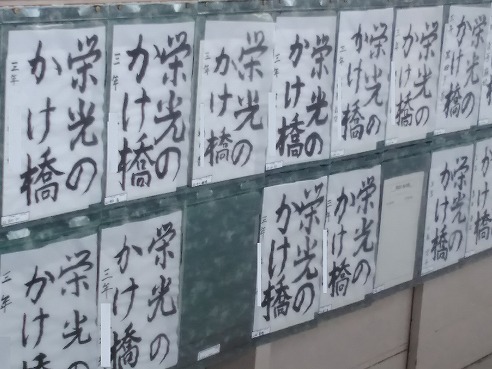 栄光の
かけ橋
三年
栄光の
かけ橋
三年
栄光の
かけ橋
三年
栄光の
かけ橋
三年
栄光の
かけ橋
三年
栄光の
かけ橋
栄光の
かけ橋
栄光の
かけ橋
三年
栄光の
かけ橋
三年
栄光の
かけ橋
三年
栄光の
かけ橋
栄光の
かけ橋
栄光の
かけ橋